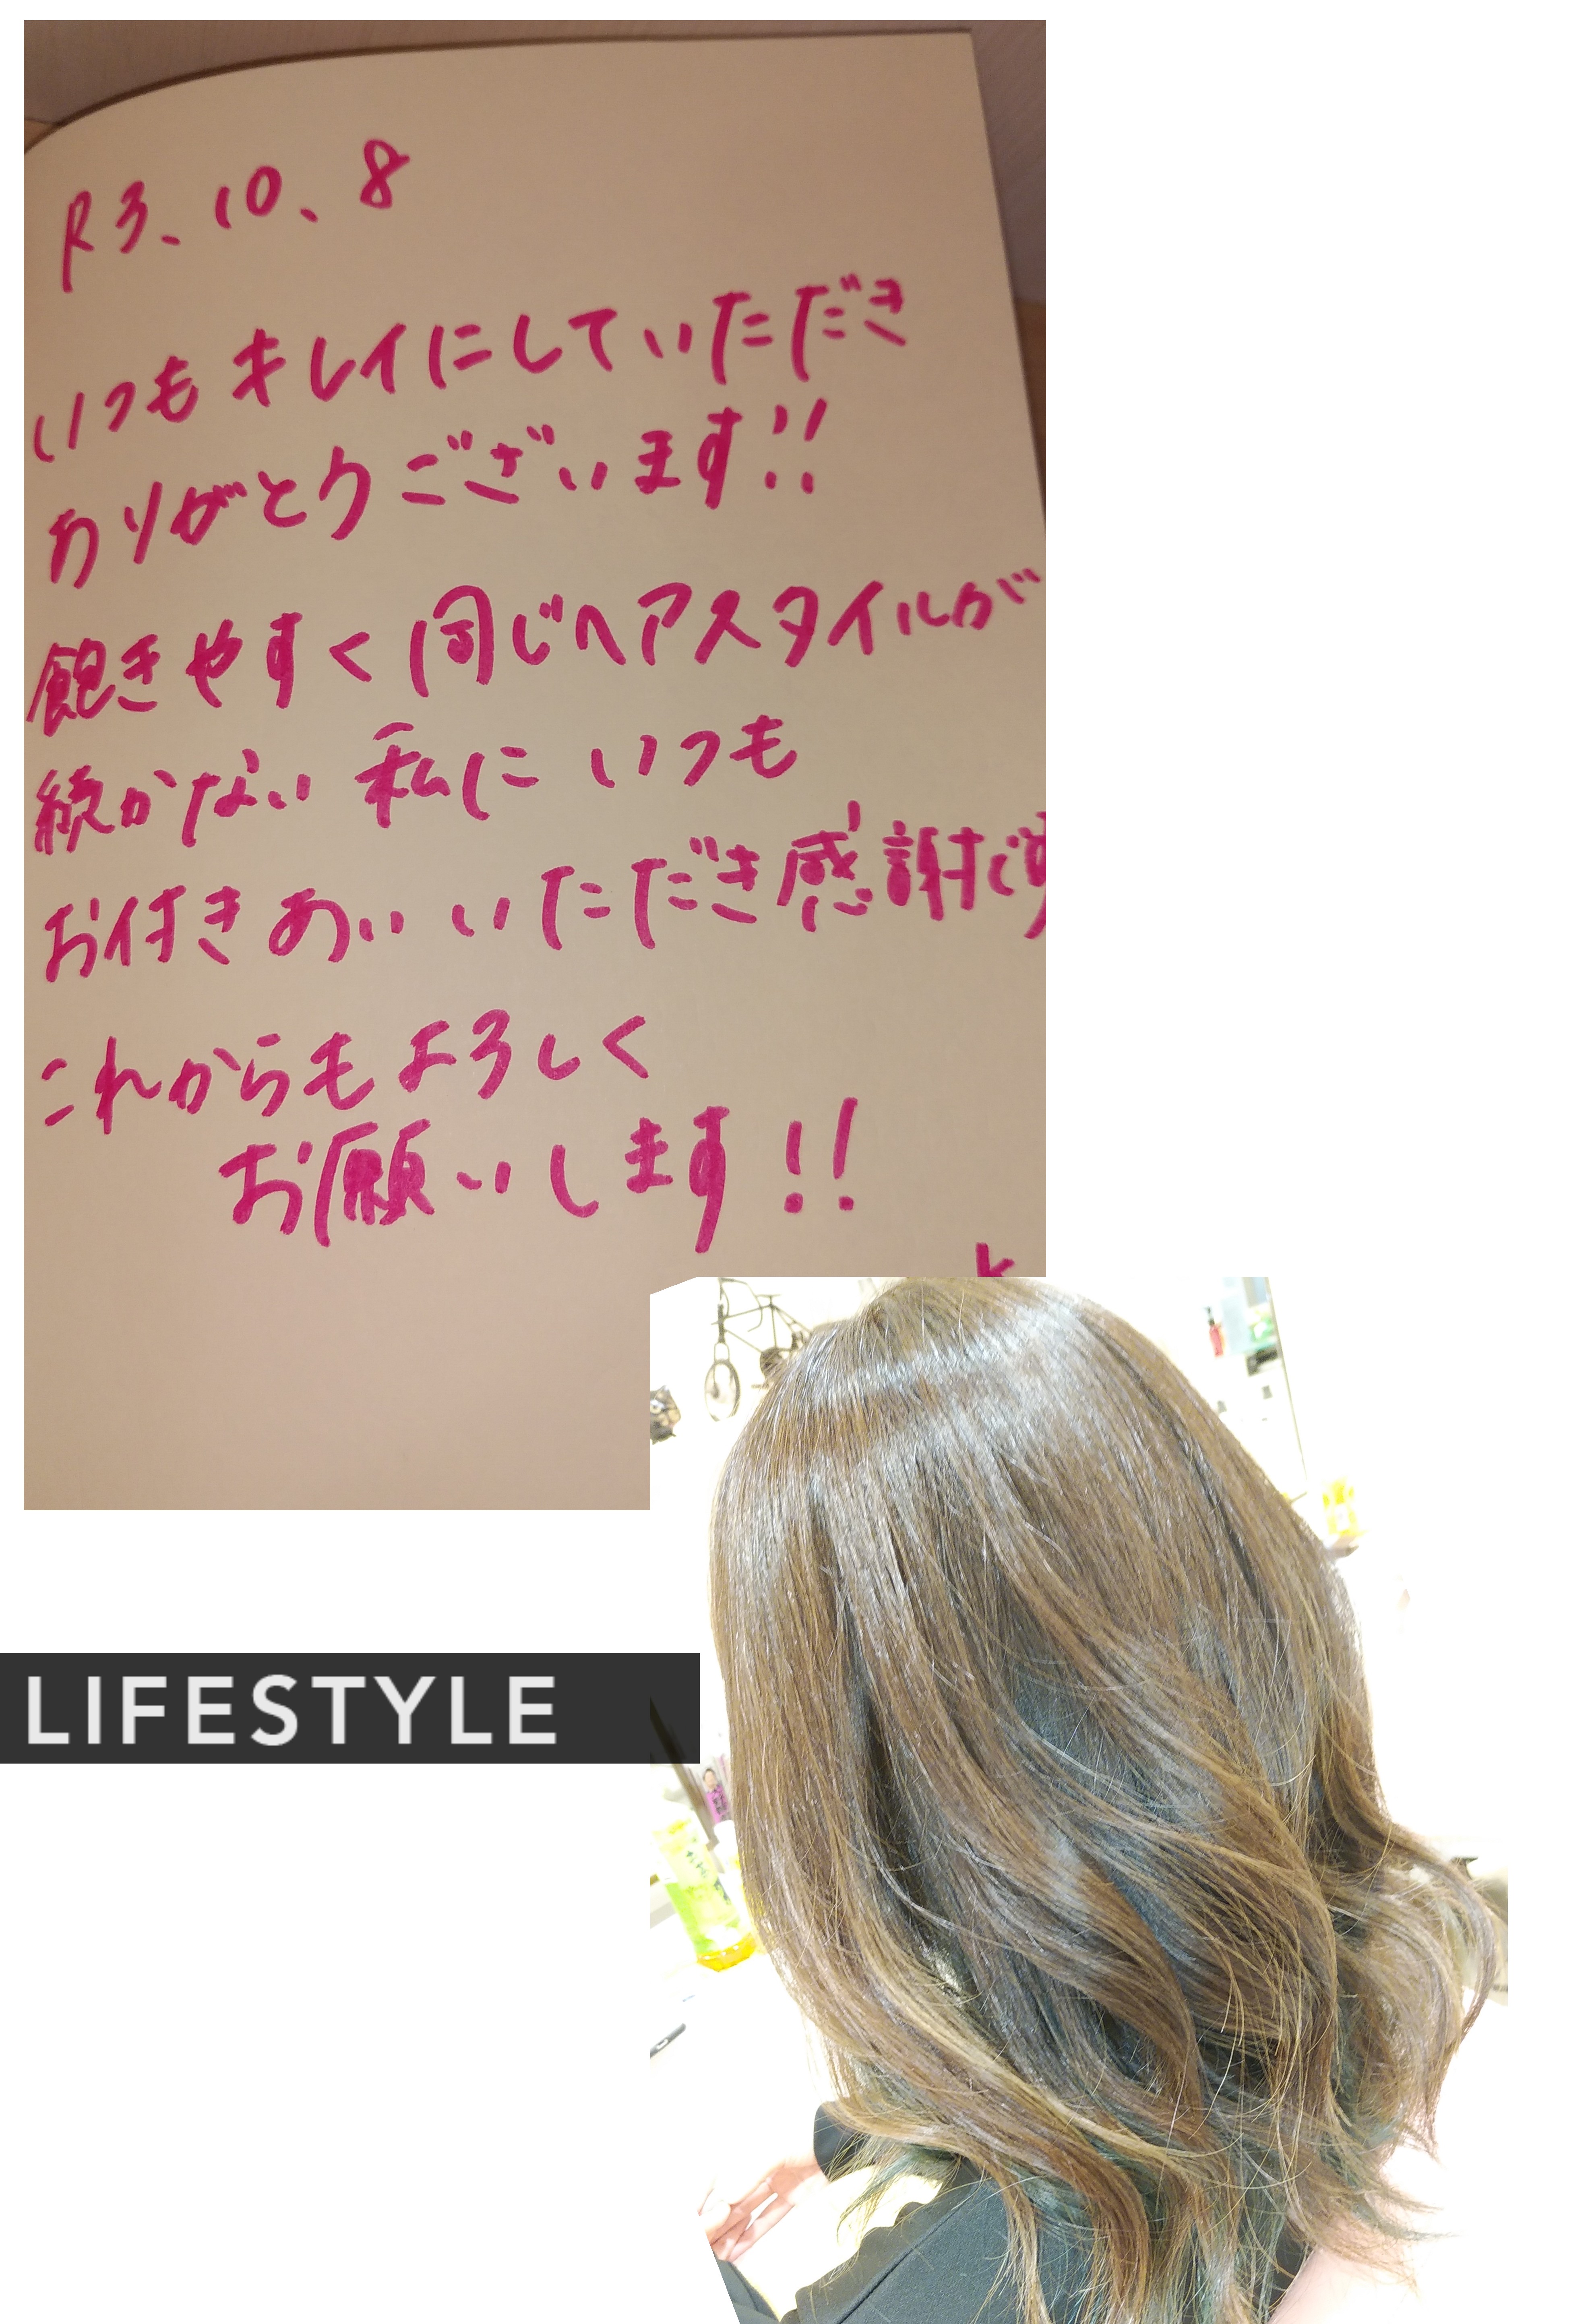 R3、10、8
いつもキレイにしていただき
ありがとうございます!!
飽きやすく同じヘアスタイルが
続かない私にいつも
お付きあいいただき感謝です
これからもよろしく
お願いします!!
LIFESTYLE